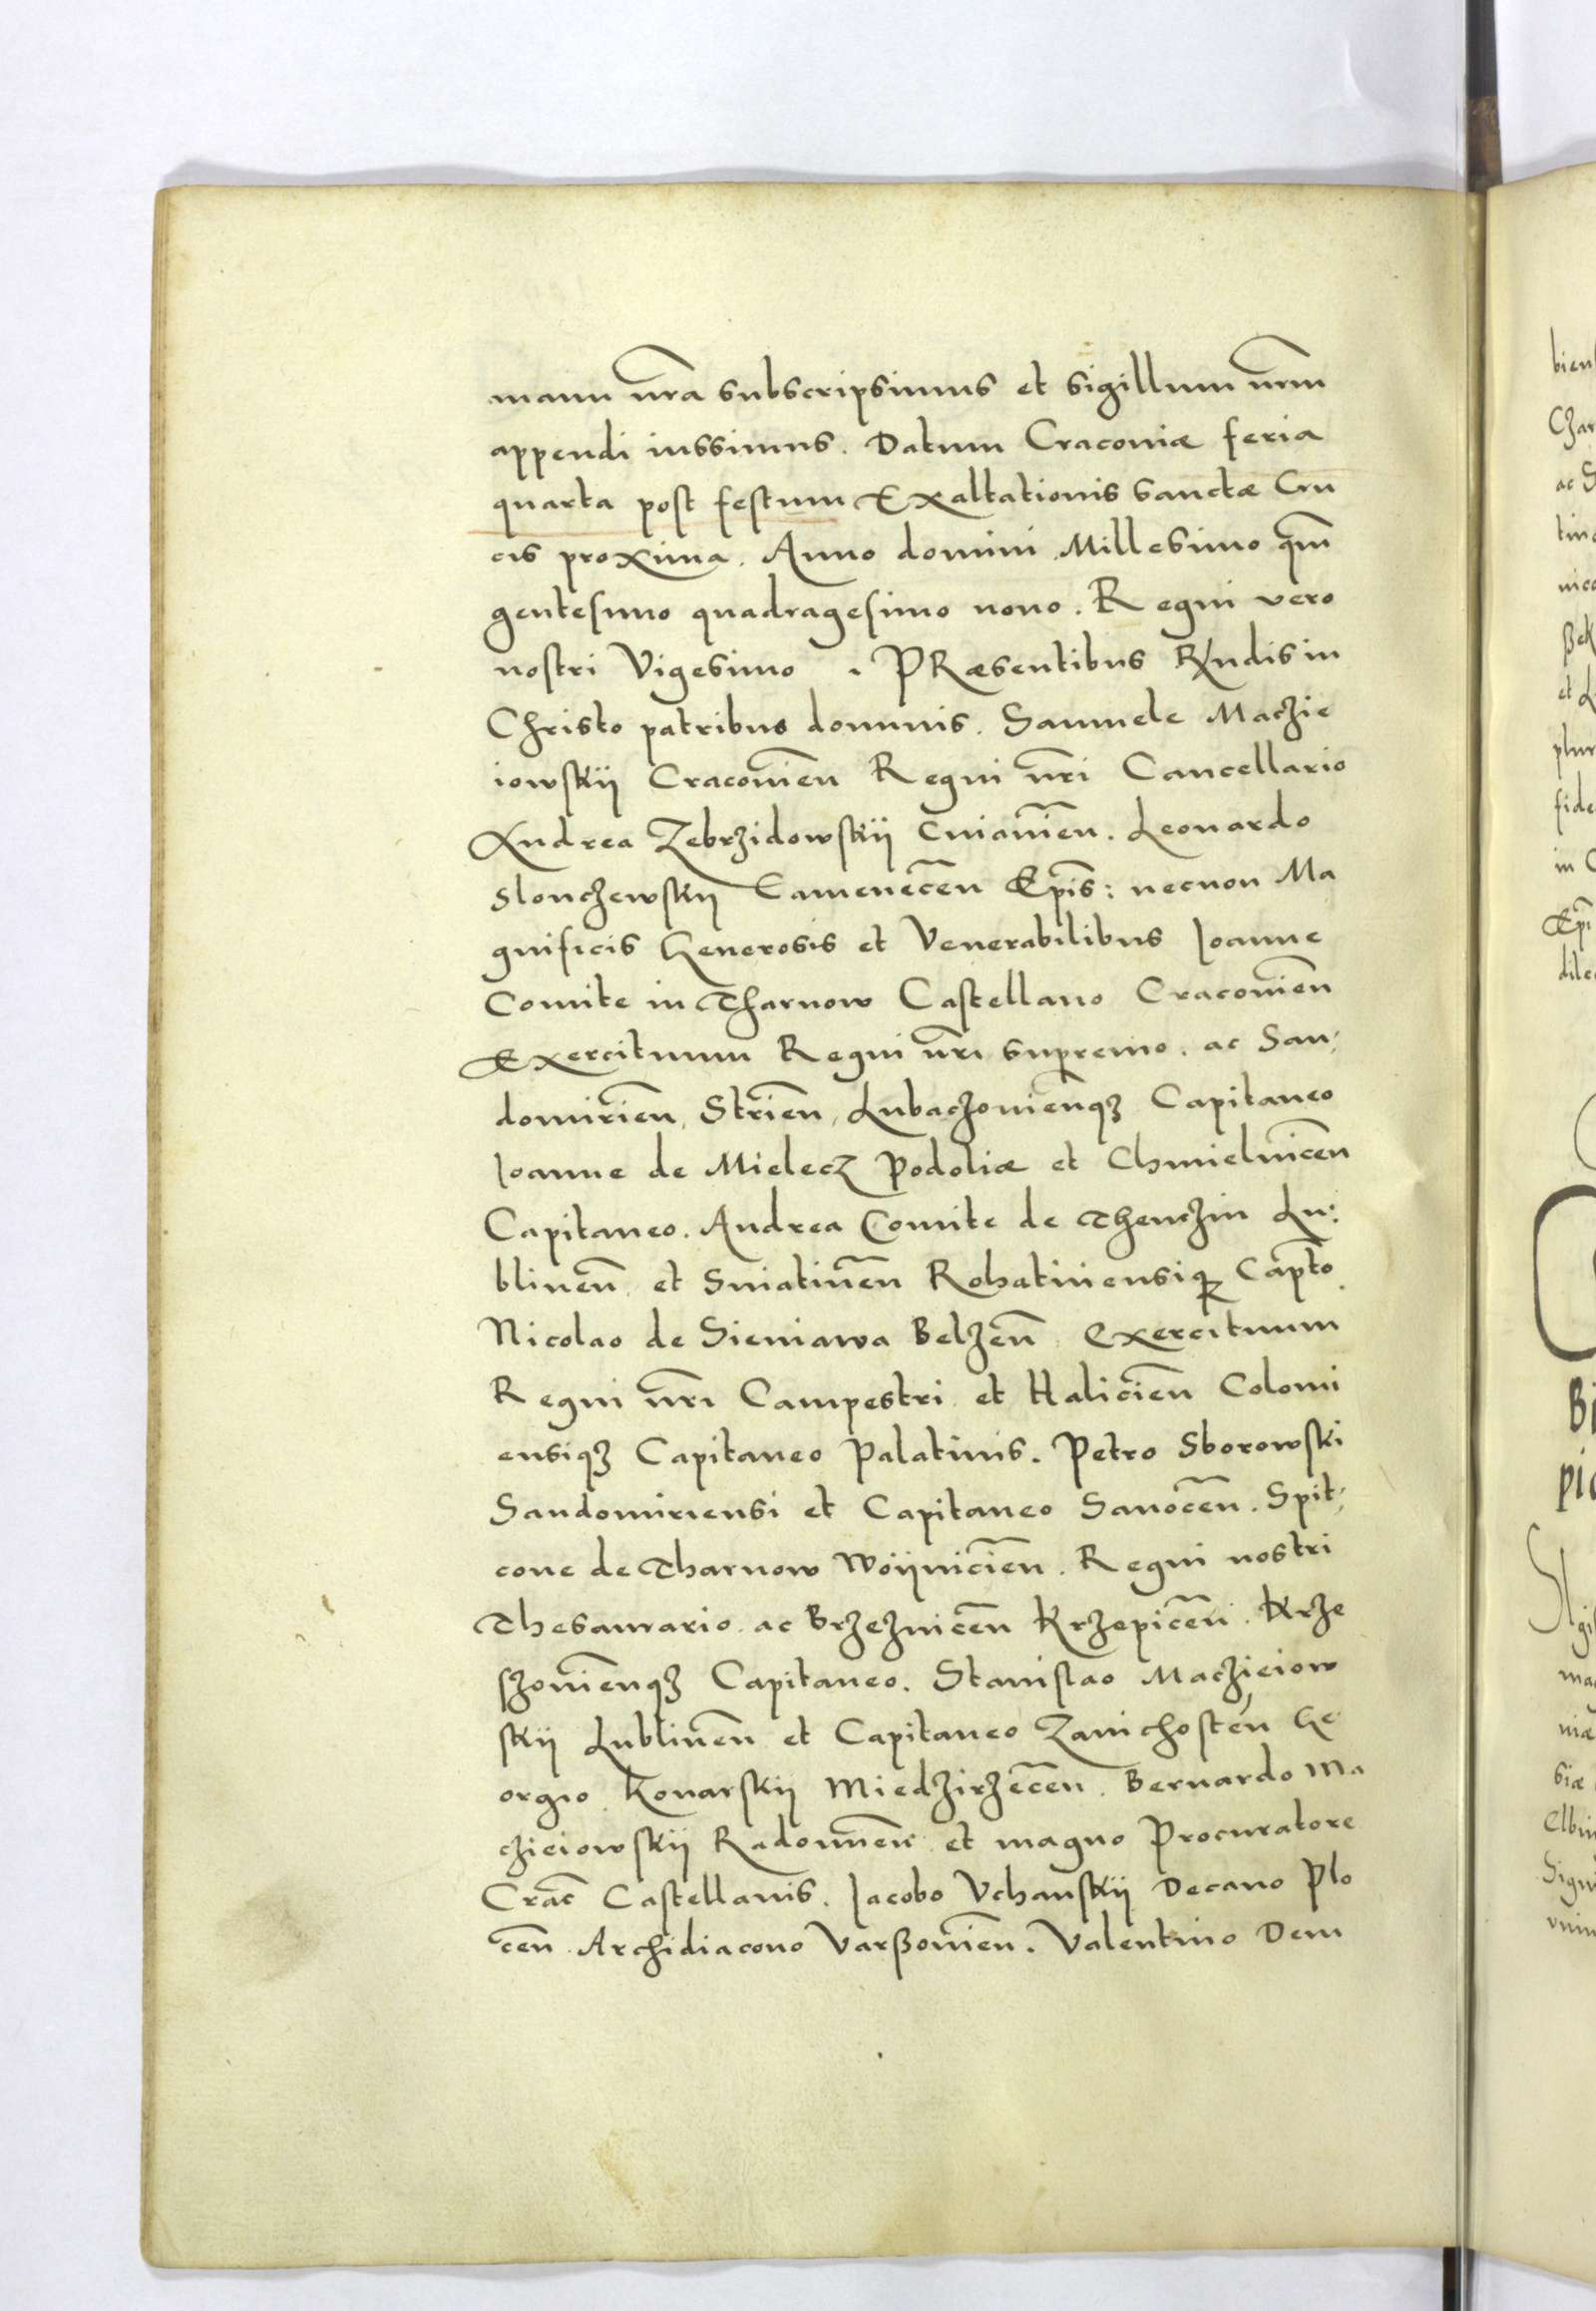 manu nr̃a subscripsimus et sigillum nr̃m
appendi iussimus. Datum Cracoviæ feria
quarta post festum Exaltationis sanctæ Cru
cis proxima. Anno domini Millesimo qm̃
gentesimo quadragesimo nono. Regni vero
nostri Vigesimo. PRæsentibus Rṽndis in
Christo patribus dominis. Samuele Maczie
iowskij Cracovieñ Regni nr̃i Cancellario
Andrea Zebrzidowskij Cuiavieñ. Leonardo
Slonczewskij Cameneceñ Ep̃is: necnon Ma
gnificis Generosis et Venerabilibus Ioanne
Comite in Tharnow Castellano Cracovieñ
Exercituum Regni nr̃i supremo. ac San:
domirieñ, Strieñ, Lubaczovieñqꝫ Capitaneo
Ioanne de Mielecz Podoliæ et Chmielniceñ
Capitaneo. Andrea Comite de Thenczin Lu:
blineñ et Sniatineñ Rohatinensiqꝫ Cap̃to.
Nicolao de Sieniawa Belzeñ Exercituum
Regni nr̃i Campestri et Halicieñ Colomi
ensiqꝫ Capitaneo Palatinis. Petro Sborowski
Sandomiriensi et Capitaneo Sanoceñ. Spit:
cone de Tharnow Wöijnicieñ. Regni nostri
Thesaurario ac Brzezniceñ Krzepiceñ. Krze
szovieñqꝫ Capitaneo. Stanislao Maczieiow
skij Lublineñ et Capitaneo Zawichosteñ Ge
orgio Konarskij Miedzirzeceñ. Bernardo Ma
czieiowskij Radomieñ et magno Procuratore
Crac̃ Castellanis. Iacobo Vchanskij Decano Plo
ceñ. Archidiacono Varßovieñ. Valentino Dem